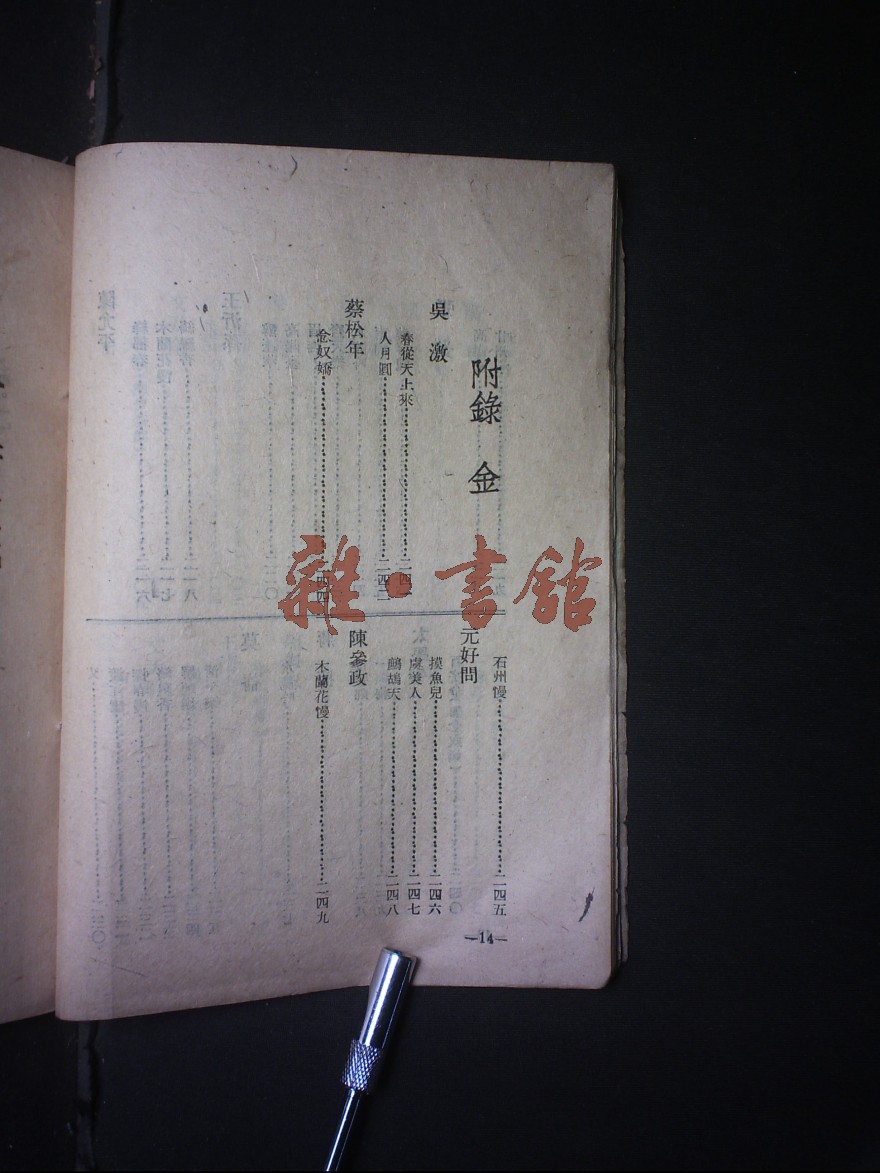 附錄 金
吳激
春從天上來
人月圓……二四三
蔡松年
念奴嬌……二四四
石州慢……二四五
元好問
摸魚兒……二四六
虞美人……二四七
鷓鴣天……二四八
陳參政
木蘭花慢……二四九
—14—
雜·書館